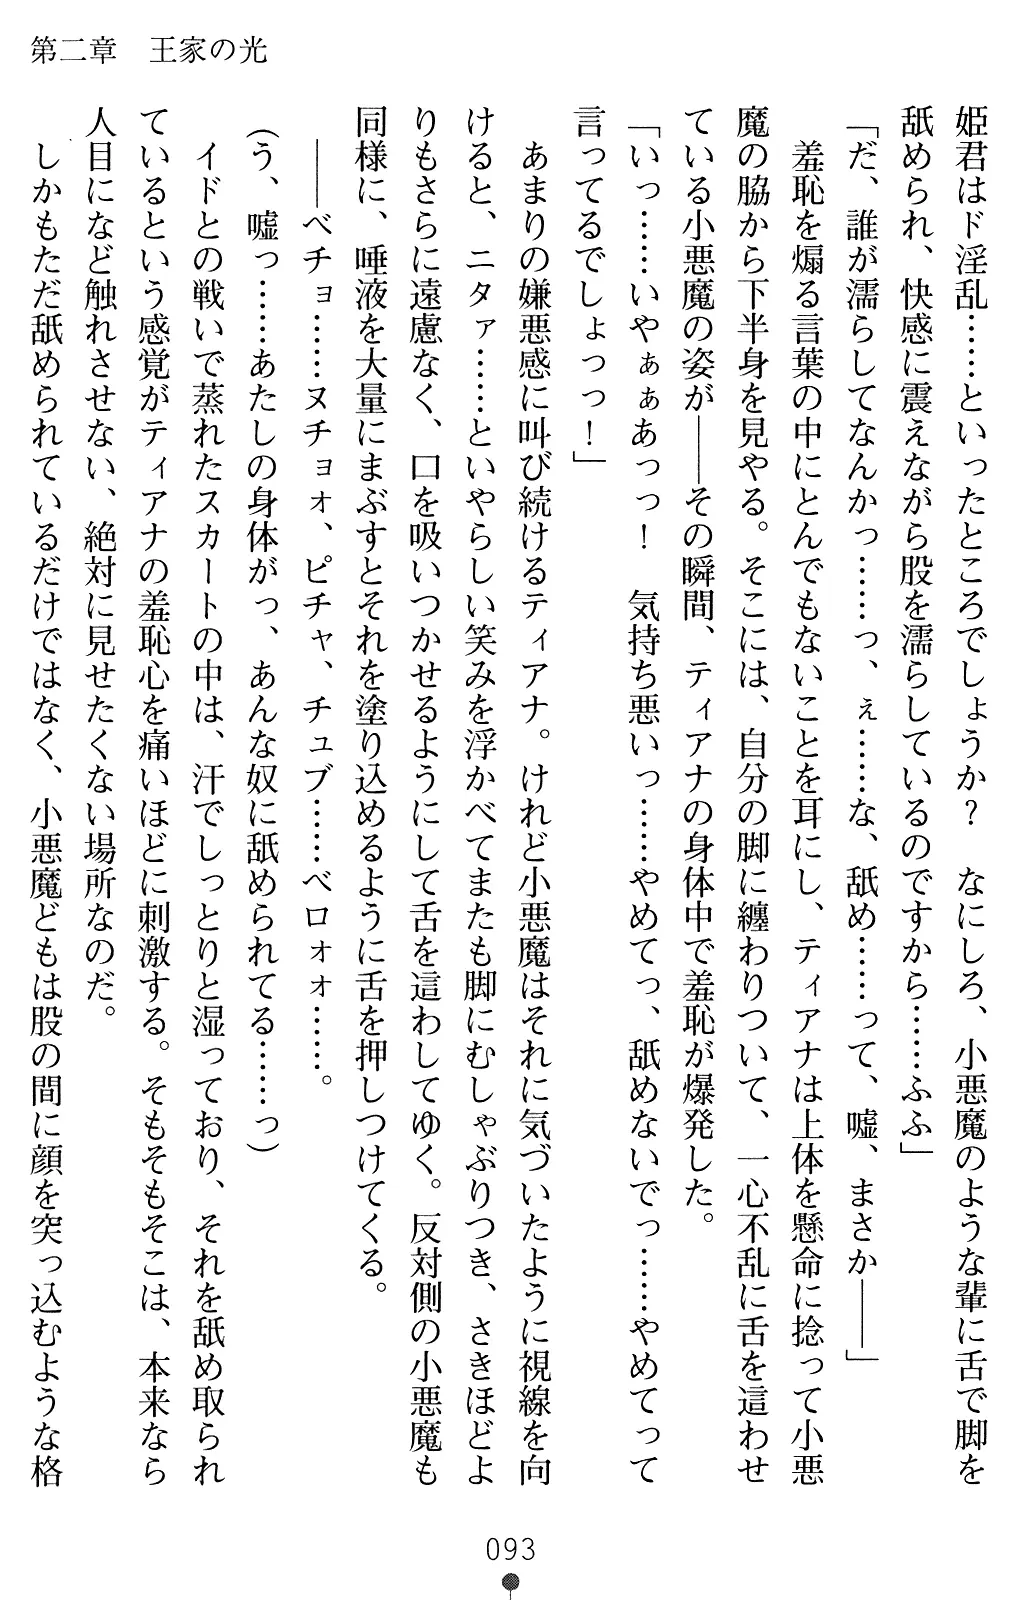 第二章　王家の光
姫君はド淫乱……といったところでしょうか？　なにしろ、小悪魔のような輩に舌で脚を
舐められ、快感に震えながら股を濡らしているのですから……ふふ」
「だ、誰が濡らしてなんかっ……っ、ぇ……な、舐め……って、嘘、まさか――」
　羞恥を煽る言葉の中にとんでもないことを耳にし、ティアナは上体を懸命に捻って小悪
魔の脇から下半身を見やる。そこには、自分の脚に纏わりついて、一心不乱に舌を這わせ
ている小悪魔の姿が――その瞬間、ティアナの身体中で羞恥が爆発した。
「いっ……いやぁぁあっっ！　気持ち悪いっ……やめてっ、舐めないでっ……やめてって
言ってるでしょっっ！」
　あまりの嫌悪感に叫び続けるティアナ。けれど小悪魔はそれに気づいたように視線を向
けると、ニタァ……といやらしい笑みを浮かべてまたも脚にむしゃぶりつき、さきほどよ
りもさらに遠慮なく、口を吸いつかせるようにして舌を這わしてゆく。反対側の小悪魔も
同様に、唾液を大量にまぶすとそれを塗り込めるように舌を押しつけてくる。
　――ベチョ……ヌチョォ、ピチャ、チュブ……ベロォォ……。
（う、嘘っ……あたしの身体がっ、あんな奴に舐められてる……っ）
　イドとの戦いで蒸れたスカートの中は、汗でしっとりと湿っており、それを舐め取られ
ているという感覚がティアナの羞恥心を痛いほどに刺激する。そもそもそこは、本来なら
人目になど触れさせない、絶対に見せたくない場所なのだ。
　しかもただ舐められているだけではなく、小悪魔どもは股の間に顔を突っ込むような格
093